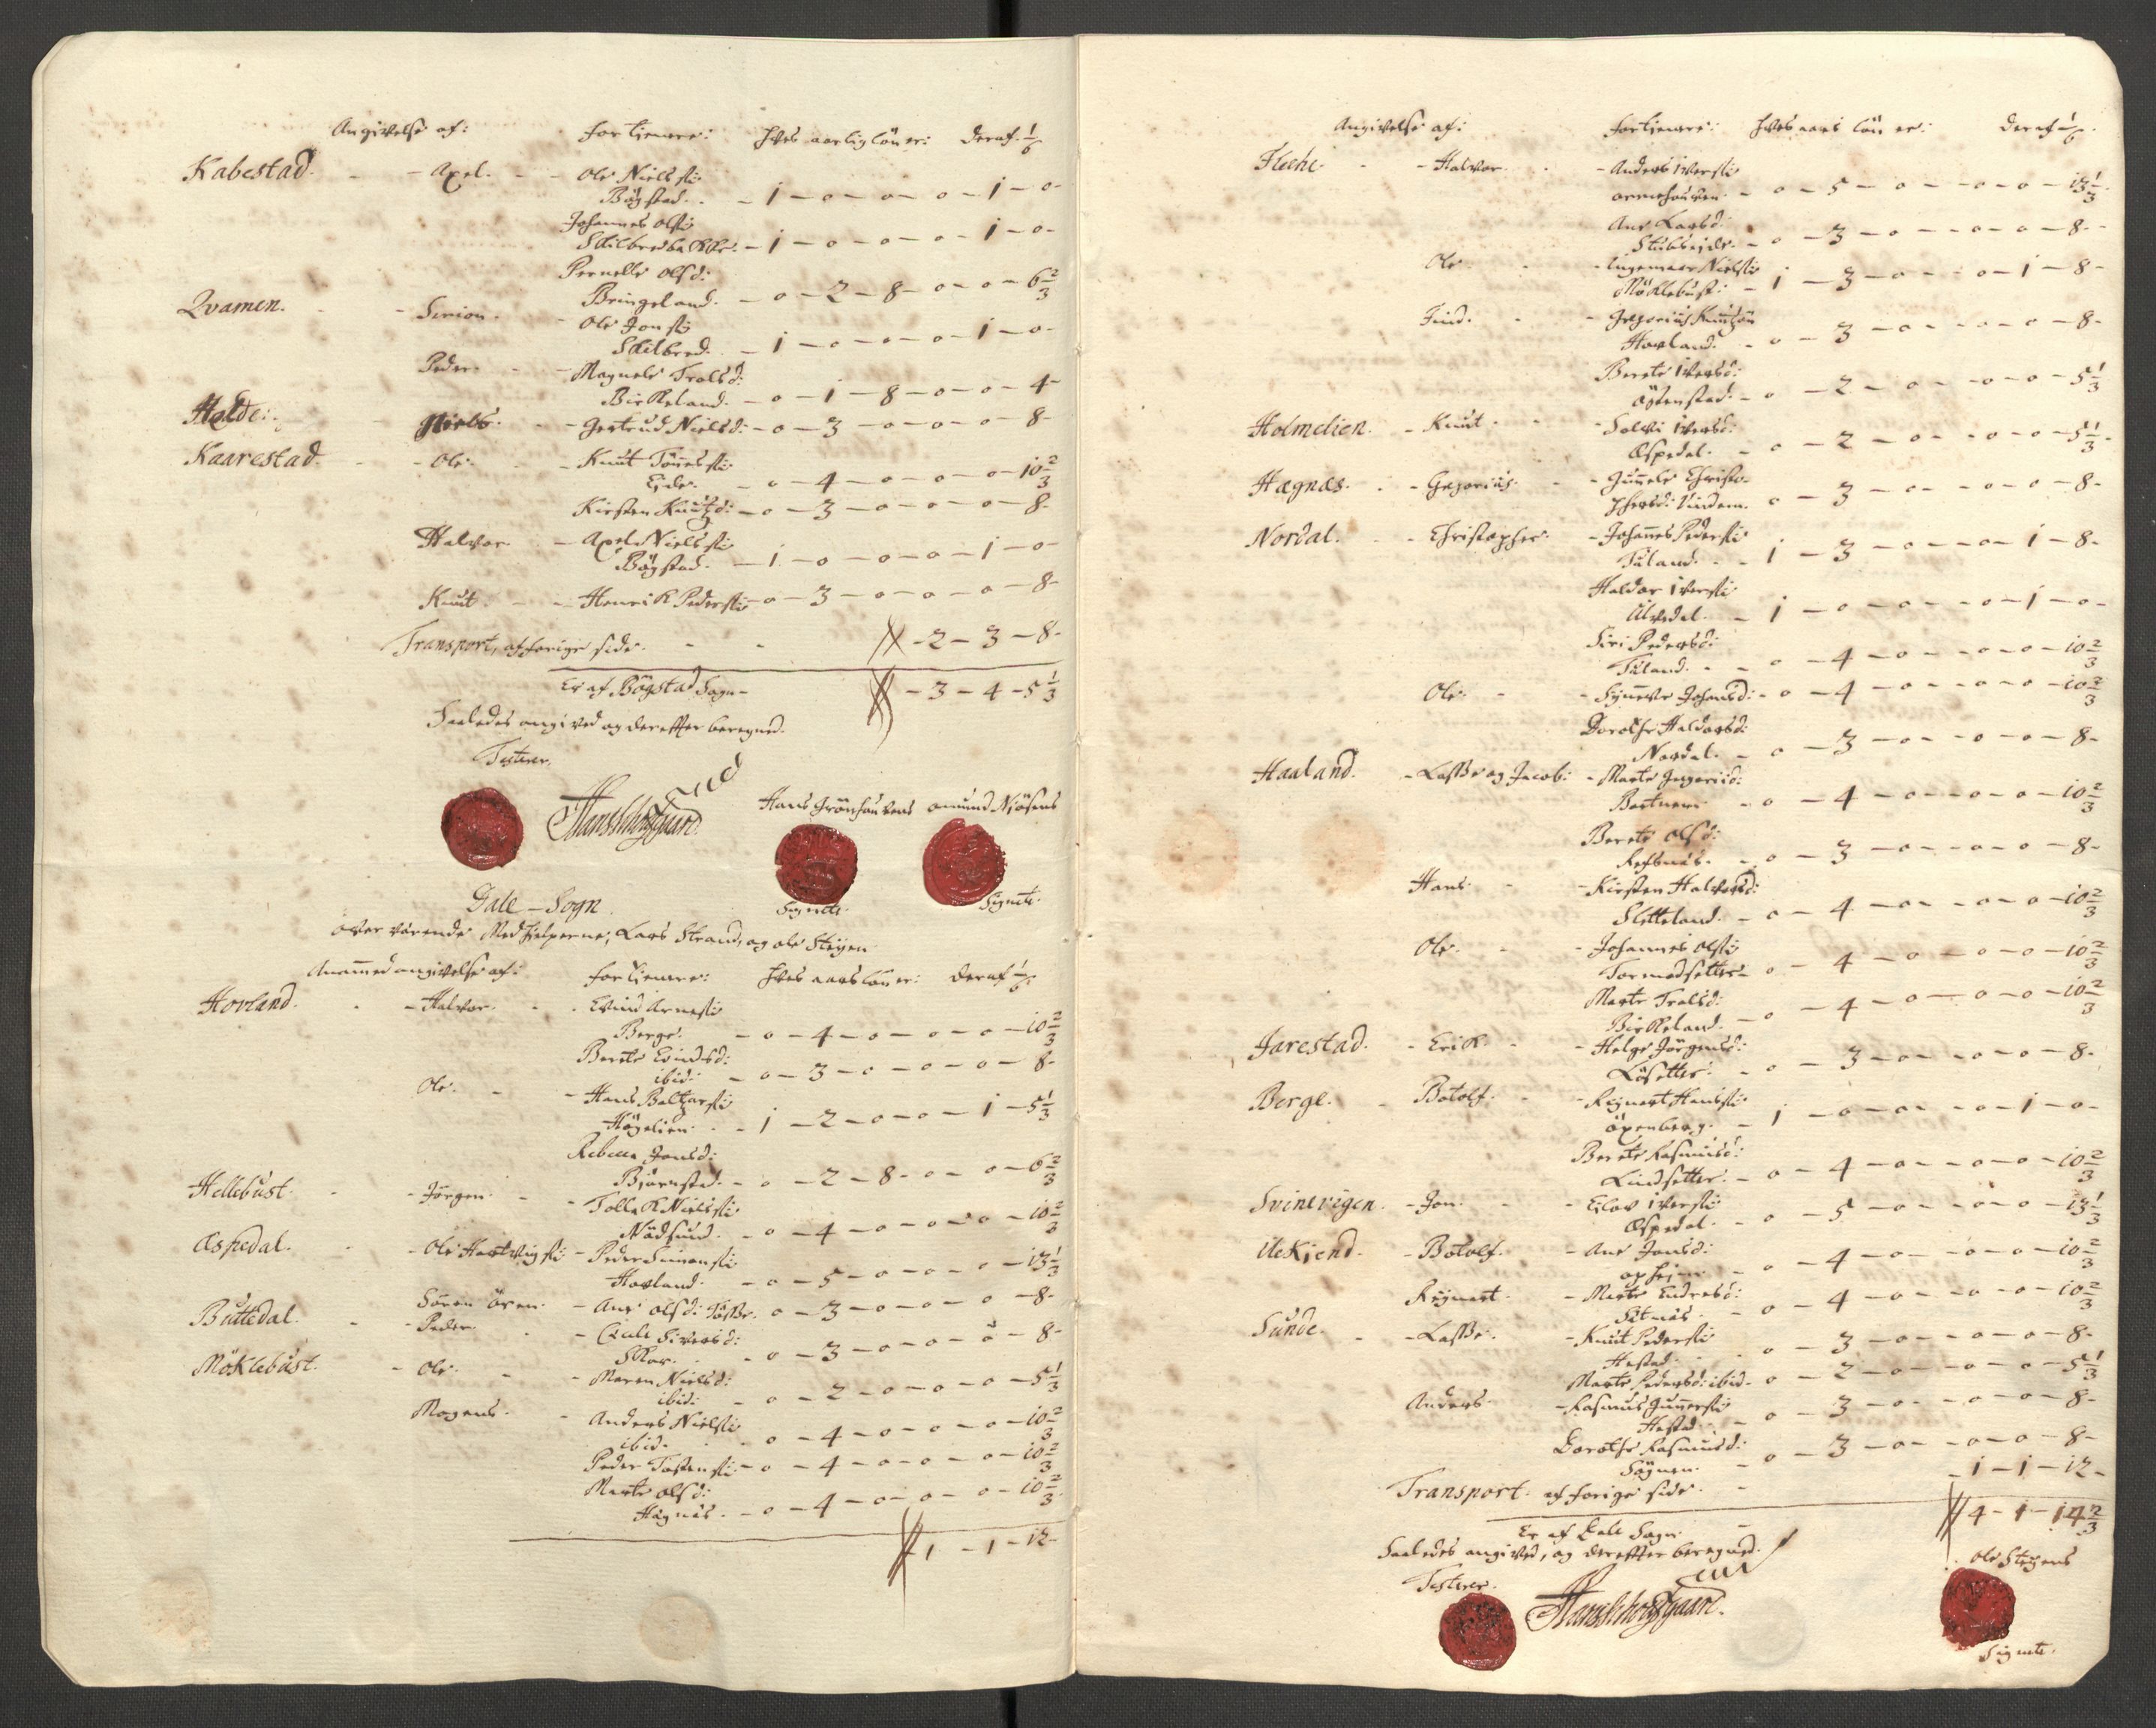 Angivelse af: for tienere: Hvis aarlig lön er: deraf 1/6
Kabestad. - Axel. - Ole Nielssön
Bögstad. - 1 - o - o - o - 1 - o -
Johannes Olssön
Skilbredbakke. - 1 - o - o - o - 1 - o -
Pernelle Olsd:
Bringeland. - o - 2 - 8 - o - o - 6 2/3
Qvamen. - Simon. - Ole Jonssön
Skilbred. - 1 - o - o - o - 1 - o -
Peder. - Magnele Trolsd:
Birkeland. - o - 1 - 8 - o - o - 4 -
Halde: Niels. - Gertrud Nielsd: - o - 3 - o - o - o - 8 -
Kaarestad. - Ole. - Knut Tönessön
Eide. - o - 4 - o - o - o - 10 2/3
Kirsten Knutzd: - o - 3 - o - o - o - 8 -
Halvor. - Axel Nielssön
Bögstad. - 1 - o - o - o - 1 - o -
Knut. - Henrik Pederssön - o - 3 - o - o - o - 8 -
Transport, af forige side. - - 2 - 3 - 8 -
Er af Bögstad Sogn - - 3 - 4 - 5 1/3
Saaledes angived og derefter beregned.
Testerer.
Hans Grönhaugens Omund Njösens
Signete. Signete.
Dale - Sogn.
over værende Medhielperne, Lars Strand, og ole Steyen
Anammed angivelse af: for tienere: Hvis aars lön er: deraf 1/6
Hovland. - Halvor. - Evind Arnessön
Berge. - o - 4 - o - o - o - 10 2/3
Berete Evindsd:
ibid: - o - 3 - o - o - o - 8 -
Ole. - Hans Baltzerssön
Högelien. - 1 - 2 - o - o - 1 - 5 1/3
Rebecca Jonsd:
Biörnstad. - o - 2 - 8 - o - o - 6 2/3
Hellebust. - Jörgen. - Tollak Nielssön
Nödsund. - o - 4 - o - o - o - 10 2/3
Æspedal. - Ole Hartvigssön - Peder Simonssön
Hovland. - o - 5 - o - o - o - 13 1/3
Sören ören. - Ane Olsd: - o - 3 - o - o - o - 8 -
Buttedal. - Peder. - Cicile Siversd:
Skor. - o - 3 - o - o - o - 8 -
Möklebust. - Ole. - Maren Nielsd:
ibid: - o - 2 - o - o - o - 5 1/3
Mogens. - Anders Nielssön
ibid. - o - 4 - o - o - o - 10 2/3
Peder Tostenssön - o - 4 - o - o - o - 10 2/3
Marte Olsd:
Hægnæs. - o - 4 - o - o - o - 10 2/3
1 - 1 - 12 -
Angivelse af: for tienere: Hvis aars lön er: deraf 1/6.
Flecke. - Halvor. - Anders Iverssön
ormehaugen. - o - 5 - o - o - o - 13 1/3
Ane Larsd:
Stubseide. - o - 3 - o - o - o - 8 -
Ole. - Ingemaar Nielssön
Möklebust. - 1 - 3 - o - o - 1 - 8 -
Find. - Gregorius Knutzön
Hovland. - o - 3 - o - o - o - 8 -
Berete Iversd:
Östenstad. - o - 2 - o - o - o - 5 1/3
Holmelien. - Knut. - Solvi Iversd:
Æspedal. - o - 2 - o - o - o - 5 1/3
Hægnæs. - Gregorius. - Gunnele Christo-
phersd: Vindem. o - 3 - o - o - o - 8 -
Nordal. - Christopher. - Johannes Pederssön
Tuland. - 1 - 3 - o - o - 1 - 8 -
Haldor Iverssön
Ulvedal. - 1 - o - o - o - 1 - o -
Siri Pedersd:
Tuland. - o - 4 - o - o - o - 10 2/3
Ole. - Synneve Johansd: - o - 4 - o - o - o - 10 2/3
Dorothe Haldorsd:
Nordal. - o - 3 - o - o - o - 8 -
Haaland. - Lasse og Jacob: - Marte Gregoriid:
Bortnern. - o - 4 - o - o - o - 10 2/3
Berete Olsd:
Refsnæs. - o - 3 - o - o - o - 8 -
Hans. - Kirsten Halvorsd:
Sletteland. - o - 4 - o - o - o - 10 2/3
Ole. - Johannes Olssön
Tormodsetter - o - 4 - o - o - o - 10 2/3
Marte Trolsd:
Birkeland. - o - 4 - o - o - o - 10 2/3
Jarestad. - Erik. - Helge Jörgensd:
Löseter. - o - 3 - o - o - o - 8 -
Berge. - Botolf. - Reynert Hanssön
öxenberg. - 1 - o - o - o - 1 - o -
Berete Rasmusd:
Lindsetter. - o - 4 - o - o - o - 10 2/3
Svinevigen. - Jon. - Eilov Iverssön
Æspedal. - o - 5 - o - o - o - 13 1/3
Ulekiend. - Botolf. - Ane Jonsd:
opheim. - o - 4 - o - o - o - 10 2/3
Reynert. - Marte Endresd:
Sætnæs. - o - 4 - o - o - o - 10 2/3
Sunde. - Lasse. - Knut Pederssön
Hestad. - o - 3 - o - o - o - 8 -
Marte Pedersd: ibid - o - 2 - o - o - o - 5 1/3
Anders. - Rasmus Gunerssön
Hestad. - o - 3 - o - o - o - 8 -
Dorothe Rasmusd:
Sögnen. - o - 3 - o - o - o - 8 -
Transport. af forige side. - - 1 - 1 - 12 -
Er af Dale Sogn - 4 - 1 - 14 2/3
Saaledes angived, og derefter beregned.
Testerer. Ole Steyens
Signete.